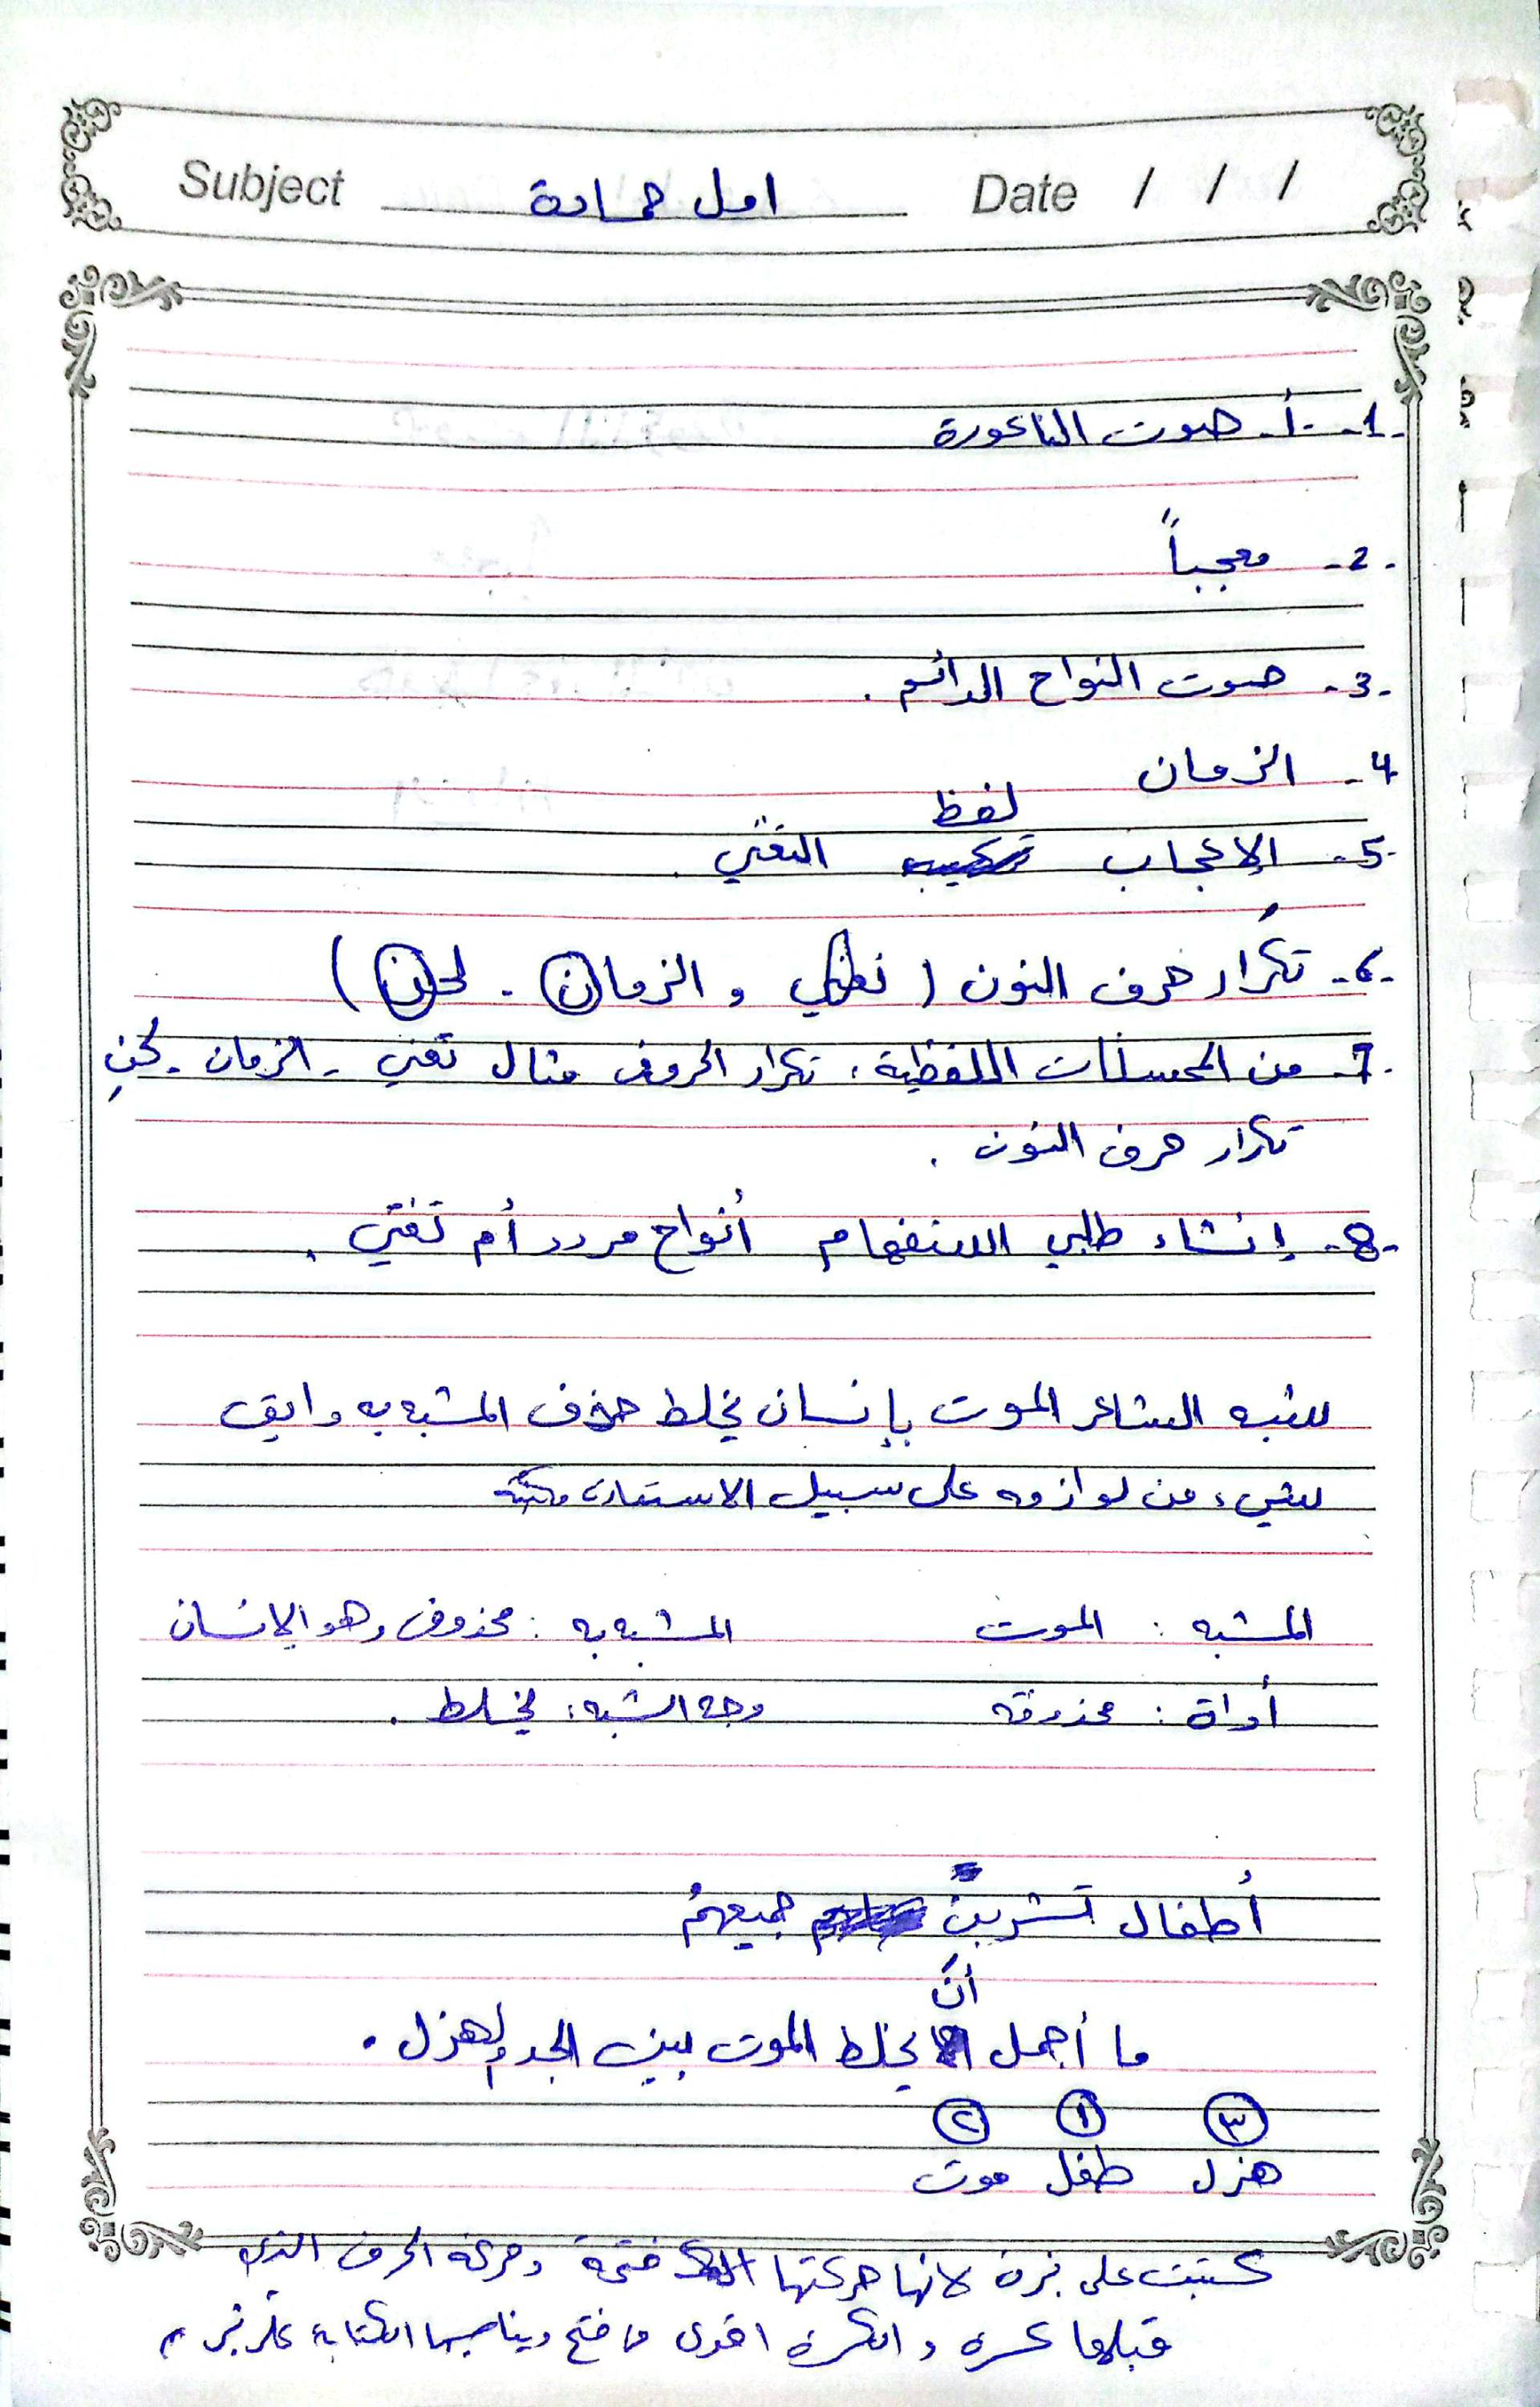 Subject امل حمادة Date / / /
1- أ- صوت الناعورة
2- معجباً
3- صوت النواح الدائم .
4- الزمان
لفظ
5- الإعجاب التغني .
6- تكرار حرف النون ( تغني و الزمان . لحن )
7- من المحسنات اللفظية : تكرار الحروف مثال تغني - الزمان - لحنِ
تكرار حرف النون .
8- إنشاء طلبي الاستفهام أنواح مردد أم تغني .
شبه الشاعر الموت بإنسان يخلط حذف المشبه به وابقى
شيء من لوازمه على سبيل الاستعارة مكنية
المشبه : الموت المشبه به : محذوف وهو الإنسان
أداة : محذوفة وجه الشبه : يخلط .
أطفال تشرين جميعهمُ
أن
ما أجمل يخلط الموت بين الجد والهزل .
٣ ١ ٢
هزل طفل موت
كتبت على نبرة لانها حركتها فتحة وحركة الحرف الذي
قبلها كسرة والكسرة اقوى من فتح ويناسبها الكتابة على نبرة